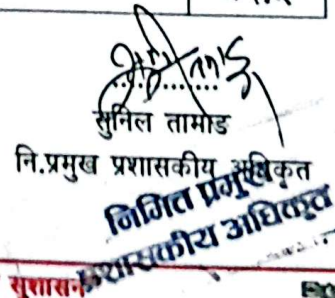 सुनिल तामाङ
नि.प्रमुख प्रशासकीय अधिकृत
निमित्त प्रमुख
प्रशासकीय अधिकृत
सुशासन